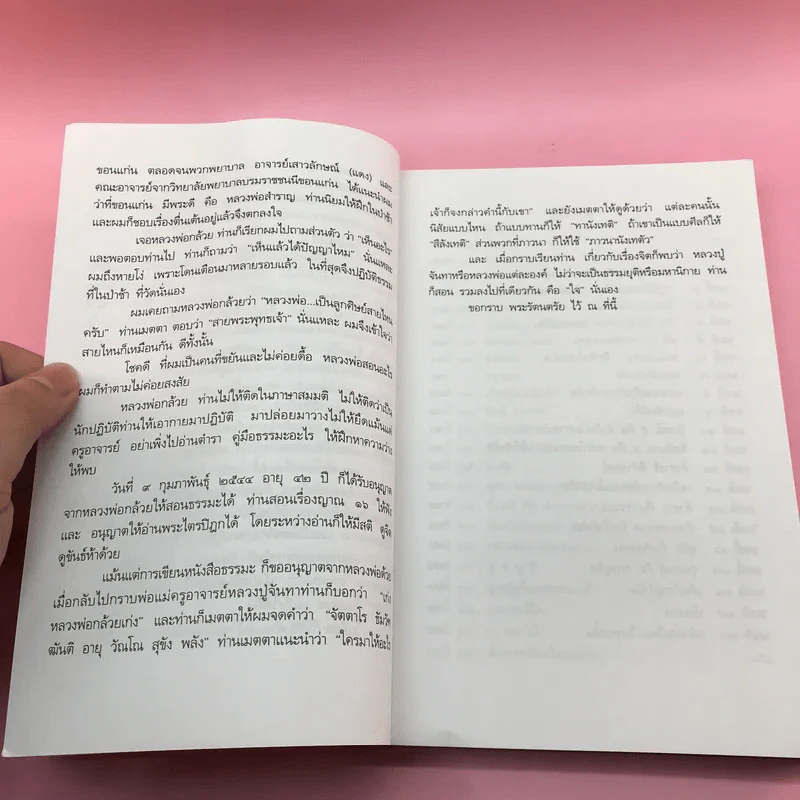 ขอนแก่น ตลอดจนพวกพยาบาล อาจารย์เสาวลักษณ์ (แดง) และ
คณะอาจารย์จากวิทยาลัยพยาบาลบรมราชชนนีขอนแก่น ได้แนะนำผม
ว่าที่ขอนแก่น มีพระดี คือ หลวงพ่อสำราญ ท่านนิยมให้ฝึกในป่าช้า
และผมก็ชอบเรื่องตื่นเต้นอยู่แล้วจึงตกลงใจ
เจอหลวงพ่อกล้วย ท่านก็เรียกผมไปถามส่วนตัว ว่า "เห็นอะไร"
และพอตอบท่านไป ท่านก็ถามว่า "เห็นแล้วได้ปัญญาไหม" นั่นแหละ
ผมถึงหายโง่ เพราะโดนเตือนมาหลายรอบแล้ว ในที่สุดจึงปฏิบัติธรรม
ที่ในป่าช้า ที่วัดนั่นเอง
ผมเคยถามหลวงพ่อกล้วยว่า "หลวงพ่อ...เป็นลูกศิษย์สายไหน
ครับ" ท่านเมตตา ตอบว่า "สายพระพุทธเจ้า" นั่นแหละ ผมจึงเข้าใจว่า
สายไหนก็เหมือนกัน ดีทั้งนั้น
โชคดี ที่ผมเป็นคนที่ขยันและไม่ค่อยดื้อ หลวงพ่อสอนอะไร
ผมก็ทำตามไม่ค่อยสงสัย
หลวงพ่อกล้วย ท่านไม่ให้ติดในภาษาสมมติ ไม่ให้ติดว่าเป็น
นักปฏิบัติท่านให้เอากายมาปฏิบัติ มาปล่อยมาวางไม่ให้ยึดแม้นแต่
ครูอาจารย์ อย่าเพิ่งไปอ่านตำรา คู่มือธรรมะอะไร ให้ฝึกหาความว่าง
ให้พบ
วันที่ ๙ กุมภาพันธุ์ ๒๕๔๔ อายุ ๔๒ ปี ก็ได้รับอนุญาต
จากหลวงพ่อกล้วยให้สอนธรรมะได้ ท่านสอนเรื่องญาณ ๑๖ ให้ฟัง
และ อนุญาตให้อ่านพระไตรปิฎกได้ โดยระหว่างอ่านก็ให้มีสติ ดูจิต
ดูขันธ์ห้าด้วย
แม้นแต่การเขียนหนังสือธรรมะ ก็ขออนุญาตจากหลวงพ่อด้วย
เมื่อกลับไปกราบพ่อแม่ครูอาจารย์หลวงปู่จันทาท่านก็บอกว่า "เก่ง
หลวงพ่อกล้วยเก่ง" และท่านก็เมตตาให้ผมจดคำว่า "จัตตาโร ธัมวัต
ฒันติ อายุ วัณโณ สุขัง พลัง" ท่านเมตตาแนะนำว่า "ใครมาให้อะไร
เจ้าก็จงกล่าวคำนี้กับเขา" และยังเมตตาให้ดูด้วยว่า แต่ละคนนั้น
นิสัยแบบไหน ถ้าแบบทานก็ให้ "ทานังเทติ" ถ้าเขาเป็นแบบศีลก็ให้
"สีลังเทติ" ส่วนพวกที่ภาวนา ก็ให้ใช้ "ภาวนานังเทตัว"
และ เมื่อกราบเรียนท่าน เกี่ยวกับเรื่องจิตก็พบว่า หลวงปู่
จันทาหรือหลวงพ่อแต่ละองค์ ไม่ว่าจะเป็นธรรมยุติหรือมหานิกาย ท่าน
ก็สอน รวมลงไปที่เดียวกัน คือ "ใจ" นั่นเอง
ขอกราบ พระรัตนตรัย ไว้ ณ ที่นี้